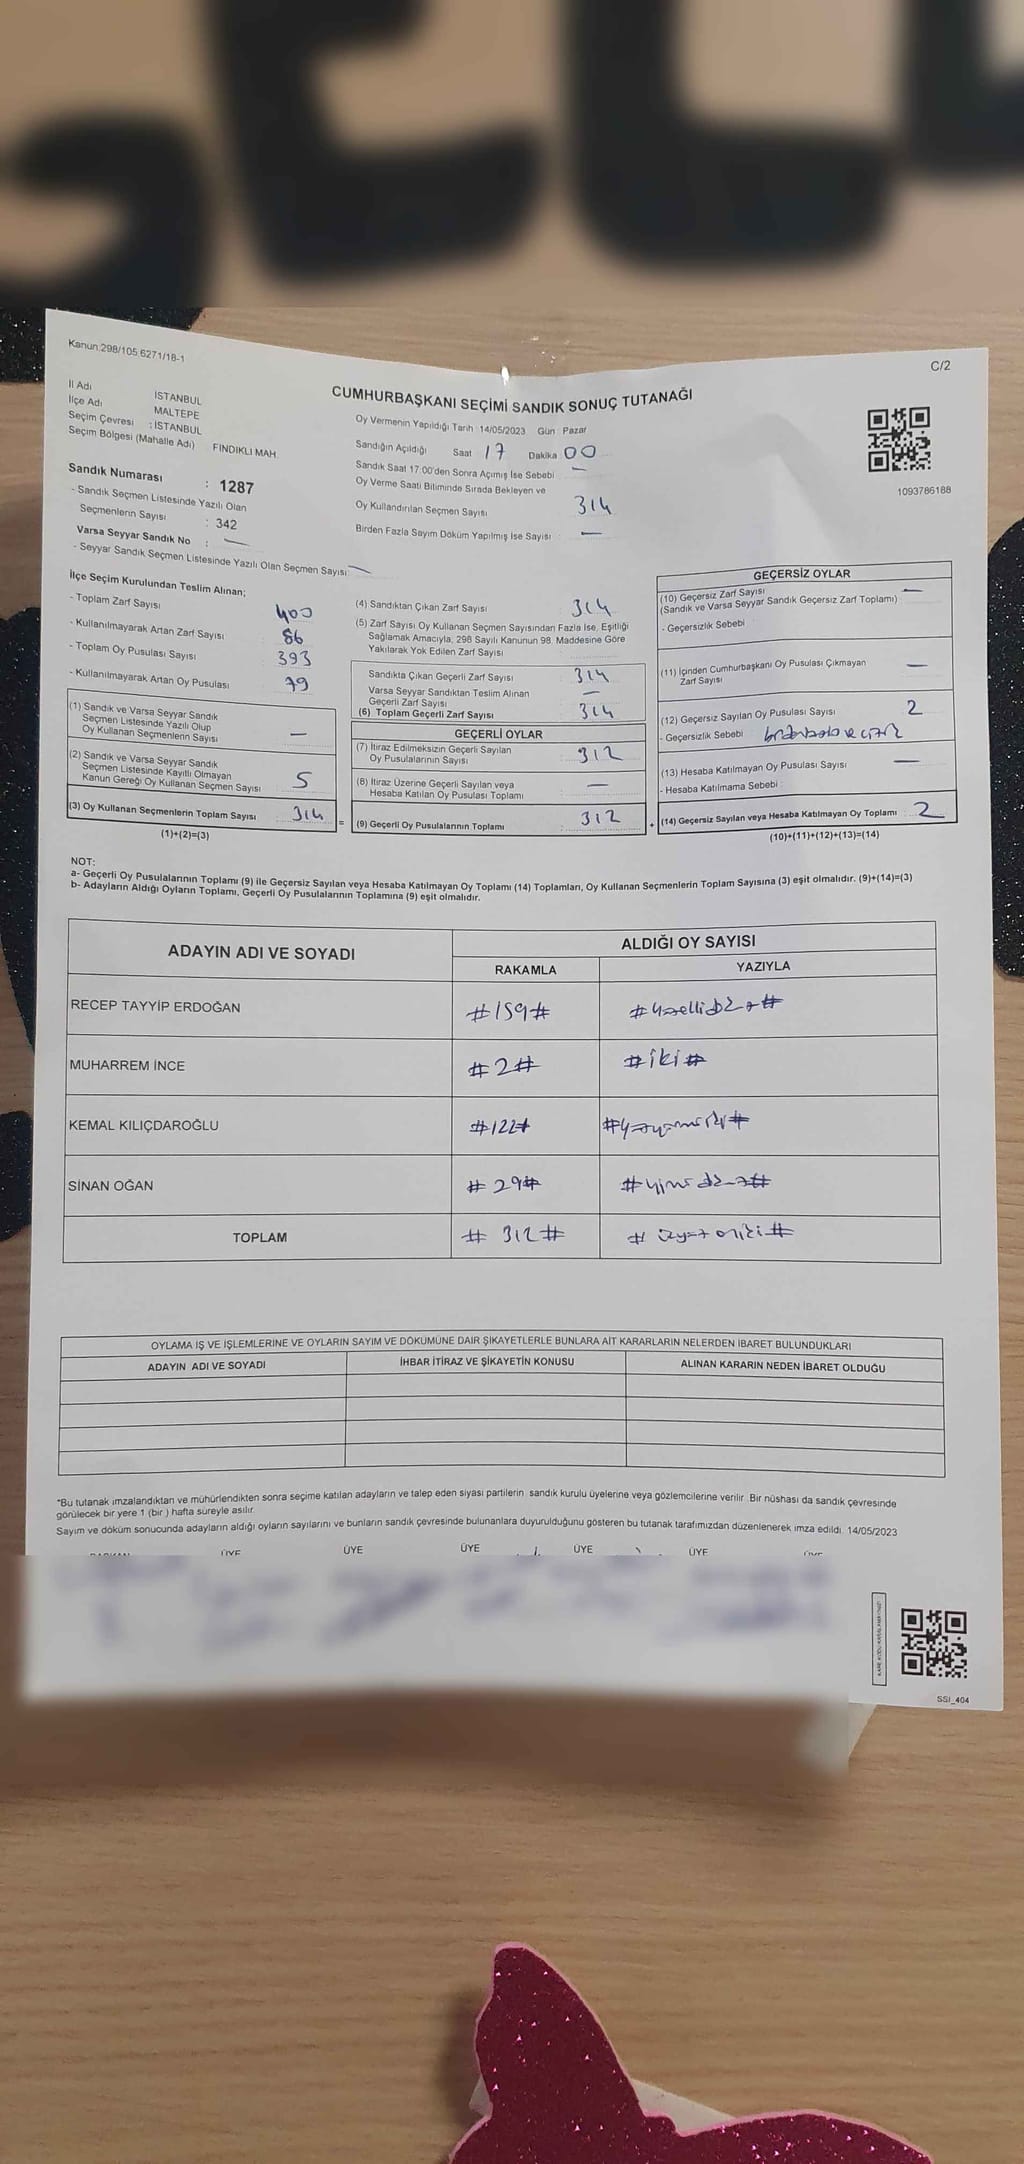 Kanun;298/105.6271/18-1
C/2
CUMHURBAŞKANI SEÇİMİ SANDIK SONUÇ TUTANAĞI
İl Adı İSTANBUL
İlçe Adı MALTEPE
Seçim Çevresi : İSTANBUL
Seçim Bölgesi (Mahalle Adı) FINDIKLI MAH.
Sandık Numarası : 1287
- Sandık Seçmen Listesinde Yazılı Olan
Seçmenlerin Sayısı : 342
Varsa Seyyar Sandık No : —
- Seyyar Sandık Seçmen Listesinde Yazılı Olan Seçmen Sayısı: —
Oy Vermenin Yapıldığı Tarih 14/05/2023 Gün Pazar
Sandığın Açıldığı Saat 17 Dakika 00
Sandık Saat 17:00'den Sonra Açılmış İse Sebebi —
Oy Verme Saati Bitiminde Sırada Bekleyen ve
Oy Kullandırılan Seçmen Sayısı 314
Birden Fazla Sayım Döküm Yapılmış İse Sayısı —
1093786188
İlçe Seçim Kurulundan Teslim Alınan;
- Toplam Zarf Sayısı 400
- Kullanılmayarak Artan Zarf Sayısı 86
- Toplam Oy Pusulası Sayısı 393
- Kullanılmayarak Artan Oy Pusulası 79
(1) Sandık ve Varsa Seyyar Sandık
Seçmen Listesinde Yazılı Olup
Oy Kullanan Seçmenlerin Sayısı —
(2) Sandık ve Varsa Seyyar Sandık
Seçmen Listesinde Kayıtlı Olmayan
Kanun Gereği Oy Kullanan Seçmen Sayısı 5
(3) Oy Kullanan Seçmenlerin Toplam Sayısı 314
(1)+(2)=(3)
=
(4) Sandıktan Çıkan Zarf Sayısı 314
(5) Zarf Sayısı Oy Kullanan Seçmen Sayısından Fazla İse, Eşitliği
Sağlamak Amacıyla, 298 Sayılı Kanunun 98. Maddesine Göre
Yakılarak Yok Edilen Zarf Sayısı
Sandıkta Çıkan Geçerli Zarf Sayısı 314
Varsa Seyyar Sandıktan Teslim Alınan
Geçerli Zarf Sayısı —
(6) Toplam Geçerli Zarf Sayısı 314
GEÇERLİ OYLAR
(7) İtiraz Edilmeksizin Geçerli Sayılan
Oy Pusulalarının Sayısı 312
(8) İtiraz Üzerine Geçerli Sayılan veya
Hesaba Katılan Oy Pusulası Toplamı —
(9) Geçerli Oy Pusulalarının Toplamı 312
+
GEÇERSİZ OYLAR
(10) Geçersiz Zarf Sayısı —
(Sandık ve Varsa Seyyar Sandık Geçersiz Zarf Toplamı)
- Geçersizlik Sebebi
(11) İçinden Cumhurbaşkanı Oy Pusulası Çıkmayan
Zarf Sayısı —
(12) Geçersiz Sayılan Oy Pusulası Sayısı 2
- Geçersizlik Sebebi
(13) Hesaba Katılmayan Oy Pusulası Sayısı —
- Hesaba Katılmama Sebebi
(14) Geçersiz Sayılan veya Hesaba Katılmayan Oy Toplamı 2
(10)+(11)+(12)+(13)=(14)
NOT:
a- Geçerli Oy Pusulalarının Toplamı (9) ile Geçersiz Sayılan veya Hesaba Katılmayan Oy Toplamı (14) Toplamları, Oy Kullanan Seçmenlerin Toplam Sayısına (3) eşit olmalıdır. (9)+(14)=(3)
b- Adayların Aldığı Oyların Toplamı, Geçerli Oy Pusulalarının Toplamına (9) eşit olmalıdır.
ADAYIN ADI VE SOYADI
ALDIĞI OY SAYISI
RAKAMLA YAZIYLA
RECEP TAYYİP ERDOĞAN #159# #yüzellidokuz#
MUHARREM İNCE #2# #iki#
KEMAL KILIÇDAROĞLU #122# #yüzyirmiiki#
SİNAN OĞAN #29# #yirmidokuz#
TOPLAM #312# #üçyüzoniki#
OYLAMA İŞ VE İŞLEMLERİNE VE OYLARIN SAYIM VE DÖKÜMÜNE DAİR ŞİKAYETLERLE BUNLARA AİT KARARLARIN NELERDEN İBARET BULUNDUKLARI
ADAYIN ADI VE SOYADI İHBAR İTİRAZ VE ŞİKAYETİN KONUSU ALINAN KARARIN NEDEN İBARET OLDUĞU
*Bu tutanak imzalandıktan ve mühürlendikten sonra seçime katılan adayların ve talep eden siyasi partilerin sandık kurulu üyelerine veya gözlemcilerine verilir. Bir nüshası da sandık çevresinde
görülecek bir yere 1 (bir) hafta süreyle asılır.
Sayım ve döküm sonucunda adayların aldığı oyların sayılarını ve bunların sandık çevresinde bulunanlara duyurulduğunu gösteren bu tutanak tarafımızdan düzenlenerek imza edildi. 14/05/2023
ÜYE ÜYE ÜYE ÜYE ÜYE
SSI_404